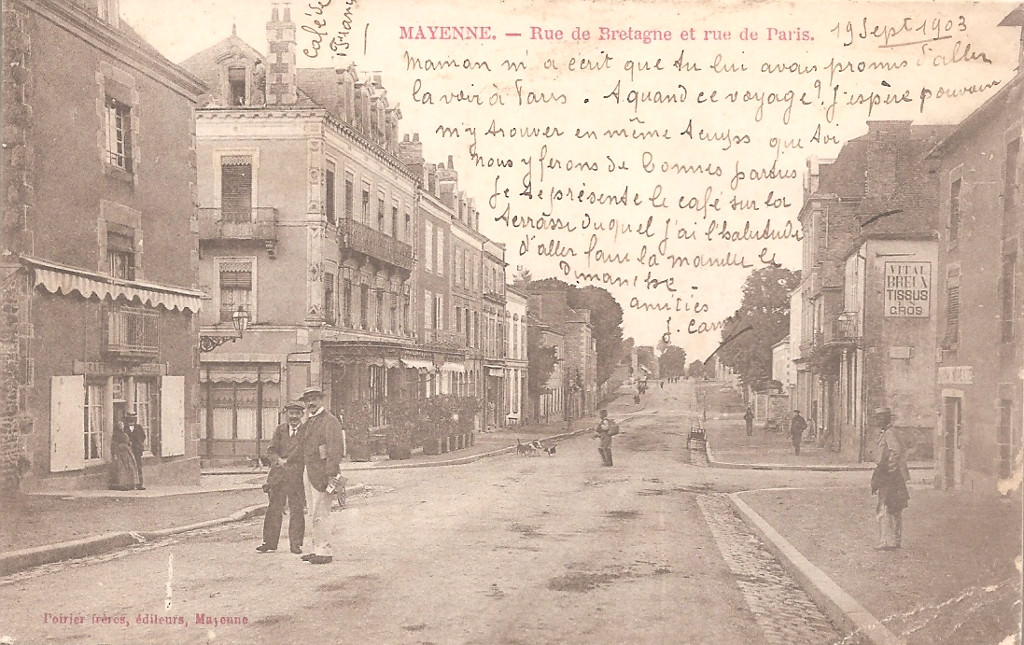 Café de
MAYENNE. — Rue de Bretagne et rue de Paris.
19 Sept 1903
Maman m'a écrit que tu lui avais promis d'aller
la voir à Paris. A quand ce voyage? J'espère pouvoir
m'y trouver en même temps que toi
nous y ferons de bonnes parties
Je te représente le café sur la
terrasse duquel j'ai l'habitude
d'aller faire la manille le
Dimanche.
amitiés
J.
VITAL
BREUX
TISSUS
GROS
Poirier frères, éditeurs, Mayenne